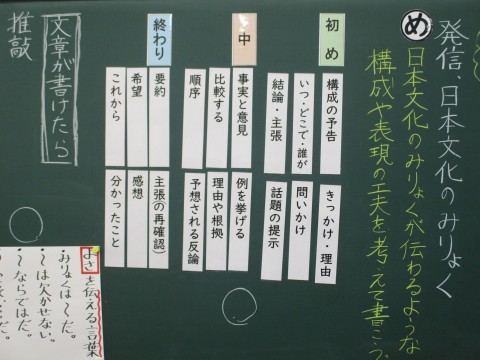 発信、日本文化のみりょく
め
日本文化のみりょくが伝わるような
構成や表現の工夫を考えて書こう。
初め
構成の予告
きっかけ・理由
いつ・どこで・誰が
問いかけ
結論・主張
話題の提示
中
事実と意見
例を挙げる
比較する
理由や根拠
順序
予想される反論
終わり
要約
主張の再確認
希望
感想
これから
分かったこと
文章が書けたら
推敲
よさを伝える言葉
・みりょくは~だ。
・~ならではだ。
・~は欠かせない。